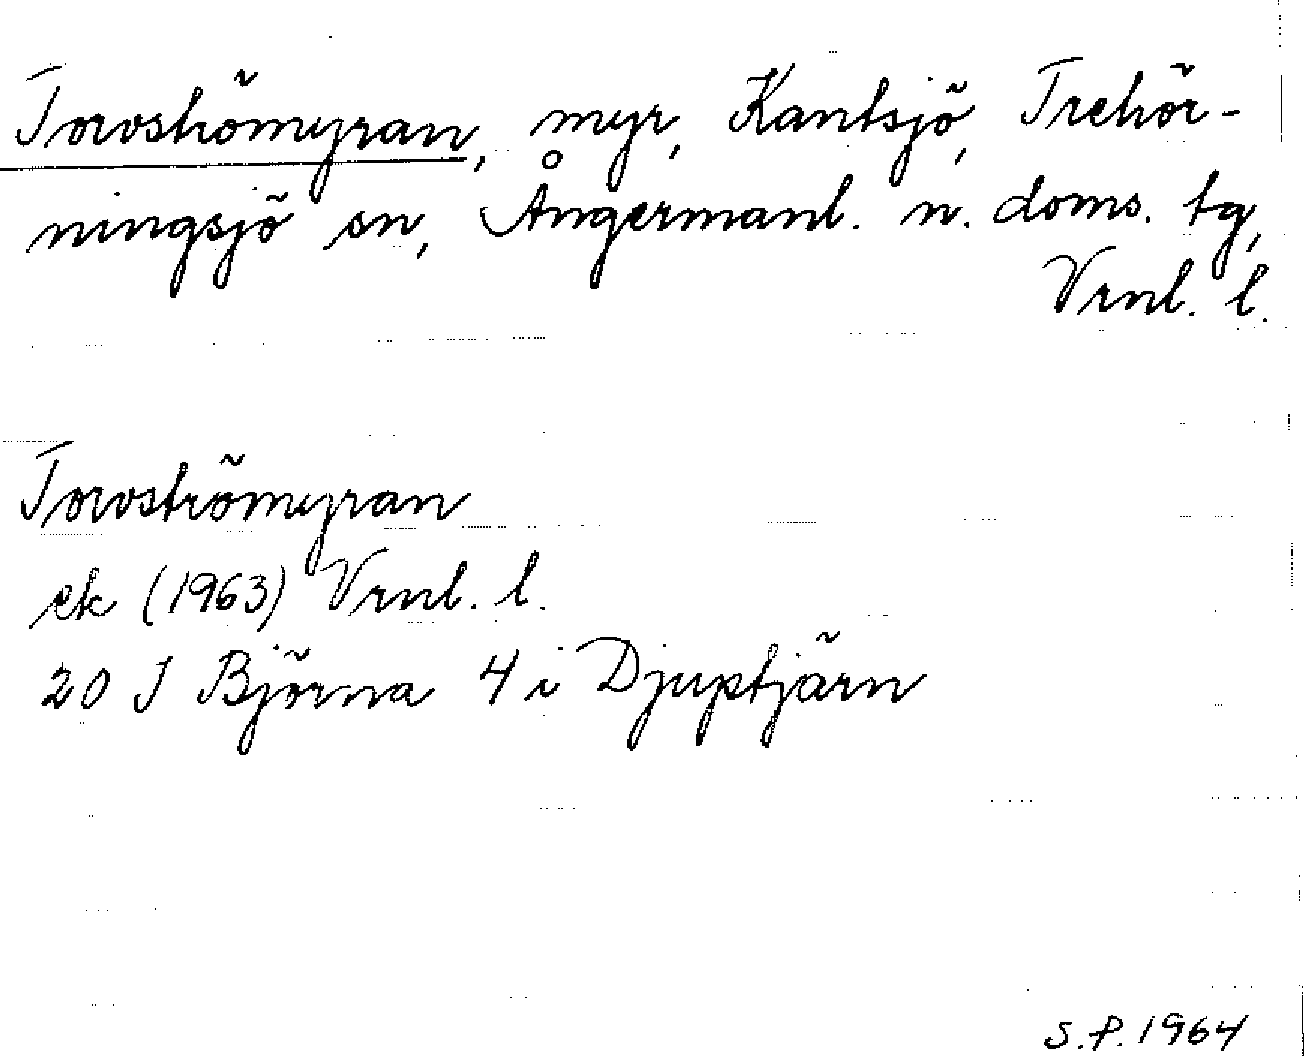 Torvströmyran, myr, Kantsjö, Trehör-
ningsjö sn, Ångermanl. n. doms. tg,
Vrnl. l.
Torvströmyran
ek (1963) Vrnl. l.
20 J Björna 4 i Djuptjärn
S.P. 1964